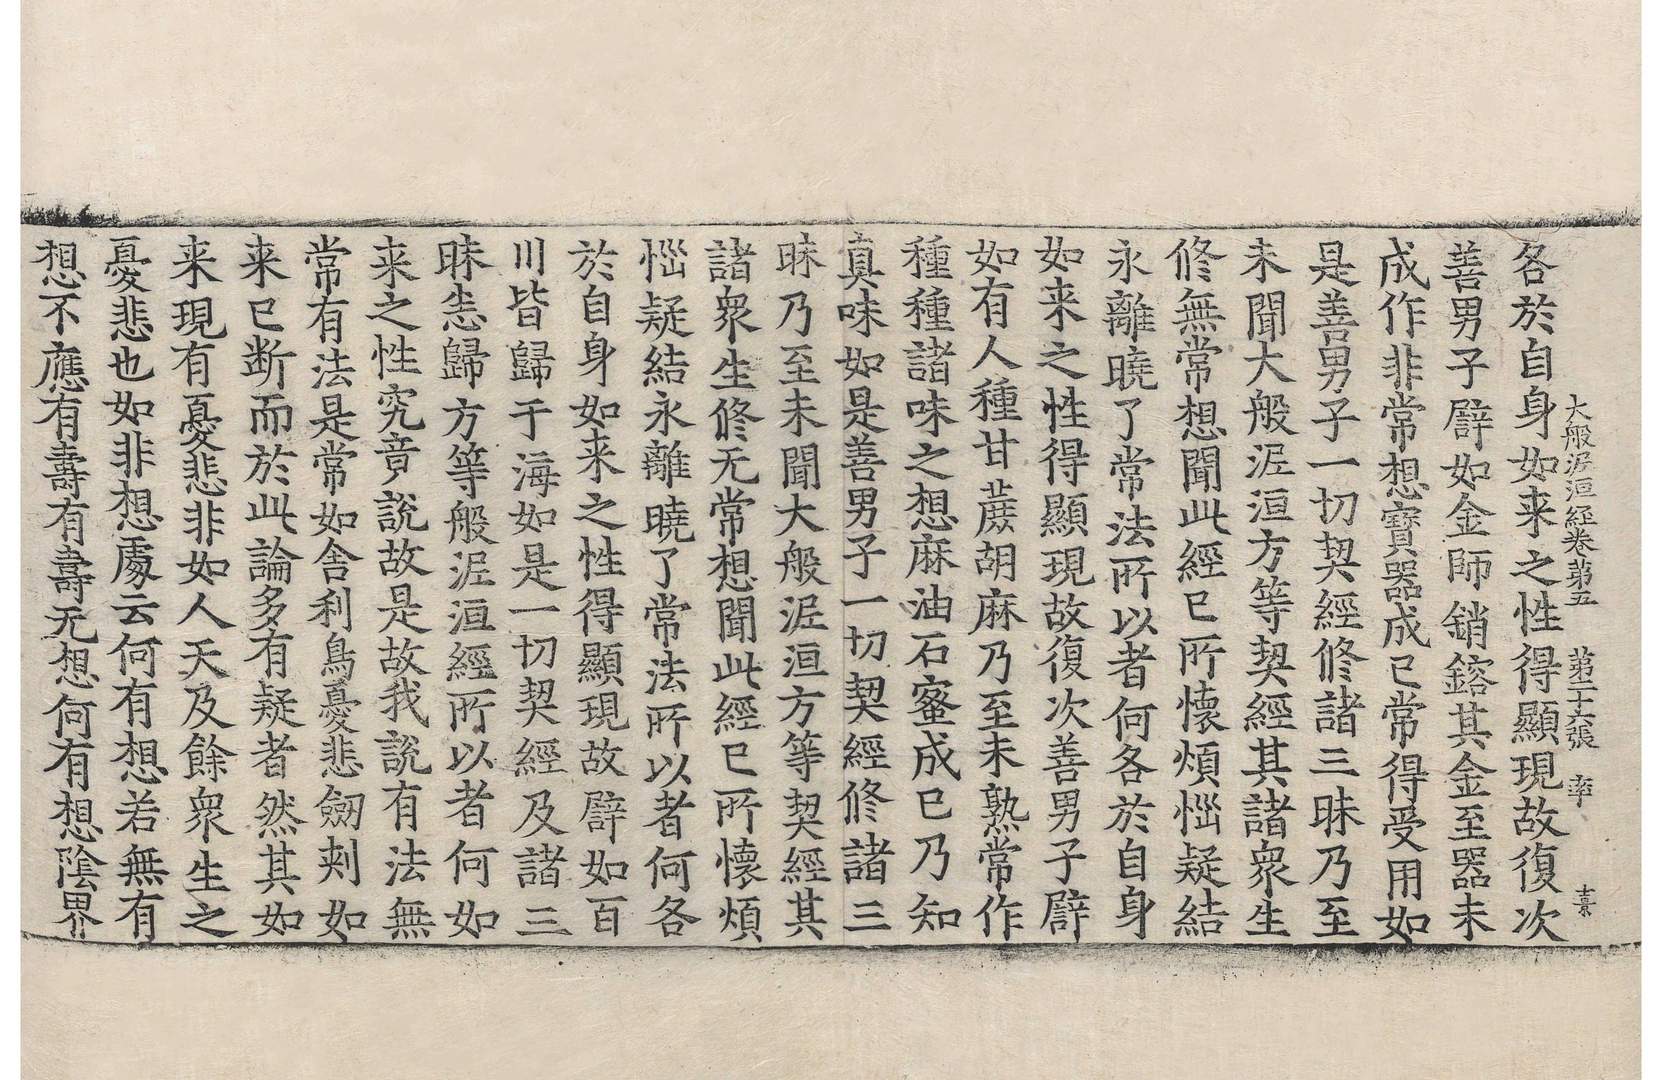 大般泥洹經卷第五 第二十六張 率
各於自身如来之性得顯現故復次
善男子譬如金師銷鎔其金至器未
成作非常想寶器成已常得受用如
是善男子一切契經修諸三昧乃至
未聞大般泥洹方等契經其諸衆生
修無常想聞此經已所懷煩惱疑結
永離曉了常法所以者何各於自身
如来之性得顯現故復次善男子譬
如有人種甘蔗胡麻乃至未熟常作
種種諸味之想麻油石蜜成已乃知
真味如是善男子一切契經修諸三
昧乃至未聞大般泥洹方等契經其
諸衆生修无常想聞此經已所懷煩
惱疑結永離曉了常法所以者何各
於自身如来之性得顯現故譬如百
川皆歸于海如是一切契經及諸三
昧悉歸方等般泥洹經所以者何如
来之性究竟說故是故我說有法無
常有法是常如舍利鳥憂悲劒刾如
来已断而於此論多有疑者然其如
来現有憂悲非如人天及餘衆生之
憂悲也如非想處云何有想若無有
想不應有壽有壽无想何有想陰界